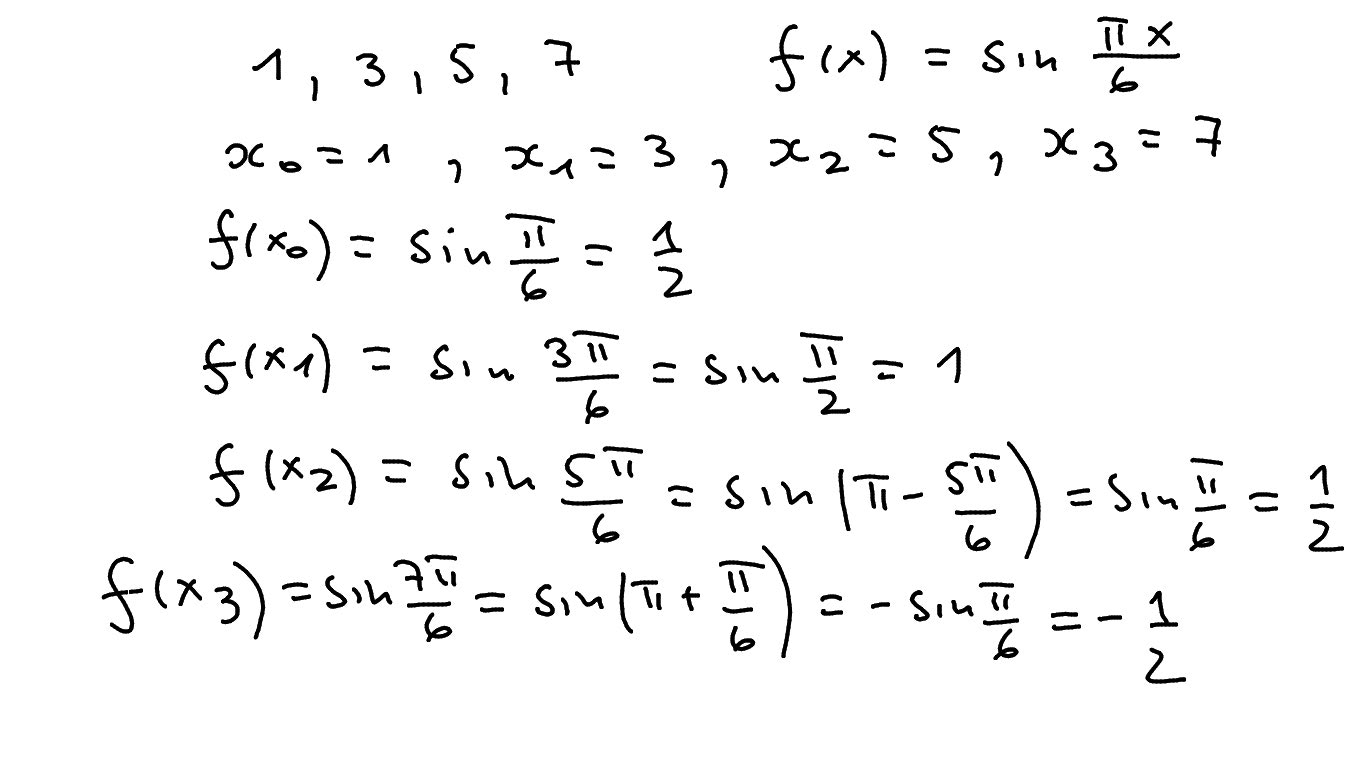 1, 3, 5, 7 f(x) = sin πx/6
x₀ = 1, x₁ = 3, x₂ = 5, x₃ = 7
f(x₀) = sin π/6 = 1/2
f(x₁) = sin 3π/6 = sin π/2 = 1
f(x₂) = sin 5π/6 = sin(π - 5π/6) = sin π/6 = 1/2
f(x₃) = sin 7π/6 = sin(π + π/6) = - sin π/6 = - 1/2